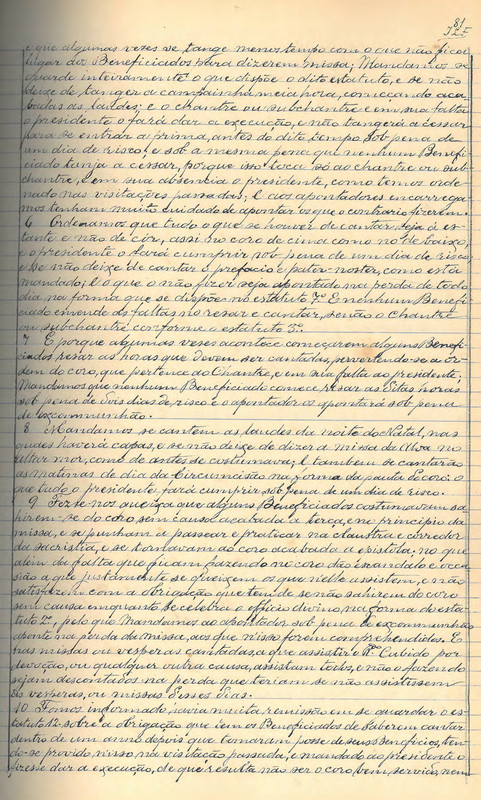 81
e que algumas vezes se tange menos tempo com o que não fica
lugar dos Beneficiados para dizerem missa; Mandamos se
guarde inteiramente o que dispõe o dito estatuto, e se não
deixe de tanger a campainha meia hora, começando aca-
badas as laudes; e o chantre ou subchantre e em sua falta
o presidente o fará dar a execução, e não tangerá a cessar
para se entrar a prima, antes do dito tempo sob pena de
um dia de risco; e sob a mesma pena que nenhum Benefi-
ciado tanja a cessar, porque isso toca só ao chantre ou sub-
chantre, e em sua absencia o presidente, como temos orde-
nado nas visitações passadas; E aos apontadores encarrega-
mos tenham muito cuidado de apontar os que o contrario fizerem.
6 Ordenamos que tudo o que se houver de cantar seja á es-
tante e não de côr, assi no coro de cima como no de baixo,
e o presidente o fará cumprir sob pena de um dia de risco,
e se não deixe de cantar o prefacio e pater-noster, como está
mandado, e o que o não fizer seja apontado na perda de todo
dia na forma que se dispõe no estatuto 7º E nenhum Benefi-
ciado emende as faltas no resar e cantar, senão o Chantre
ou subchantre conforme o estatuto 3º.
7 E porque algumas vezes acontece começarem alguns Benefi-
ciados resar as horas que devem ser cantadas, pervertendo-se a or-
dem do coro, que pertence ao Chantre, e em sua falta ao presidente;
Mandamos que nenhum Beneficiado comece resar as ditas horas
sob pena de dois dias de risco, e o apontador os apontará sob pena
de excommunhão.
8 Mandamos se cantem as laudes da noite do Natal, nas
quaes haverá capas, e se não deixe de dizer a missa da Alva no
altar mor, como de antes se costumava; E tambem se cantarão
as matinas de dia da Circumcisão na forma da pauta do coro: o
que tudo o presidente fará cumprir sob pena de um dia de risco.
9 Fez-se nos queixa que alguns Beneficiados costumavam sa-
hirem-se do coro sem causa, acabada a terça, e no principio da
missa, e se punham a passear e praticar na claustra e corredor
da sacristia, e se tornavam ao coro acabada a epistola: no que
alem da falta que ficam fazendo no coro dão escandalo e oca-
sião a que justamente se queixem os que nelle assistem, e não
satisfazem com a obrigação que tem de se não sahirem do coro
sem causa emquanto se celebra o officio divino, na forma do esta-
tuto 2º, pelo que Mandamos ao apontador sob pena de excommunhão
aponte na perda da missa, aos que nisso forem comprehendidos. E
nas missas ou vesperas cantadas, a que assistir o Rdo Cabido por
devoção, ou qualquer outra causa, assistam todos, e não o fazendo
sejam descontados na perda que teriam se não assistissem
ás vesperas, ou missas desses dias.
10 Fomos informado, havia muita remissão em se guardar o es-
tatuto 12 sobre a obrigação que tem os Beneficiados de saberem cantar
dentro de um anno depois que tomaram posse de seus Beneficios, ten-
do-se provido nisso na visitação passada, e mandado ao presidente o
fizesse dar a execução, de que resulta não ser o coro bem servido, nem